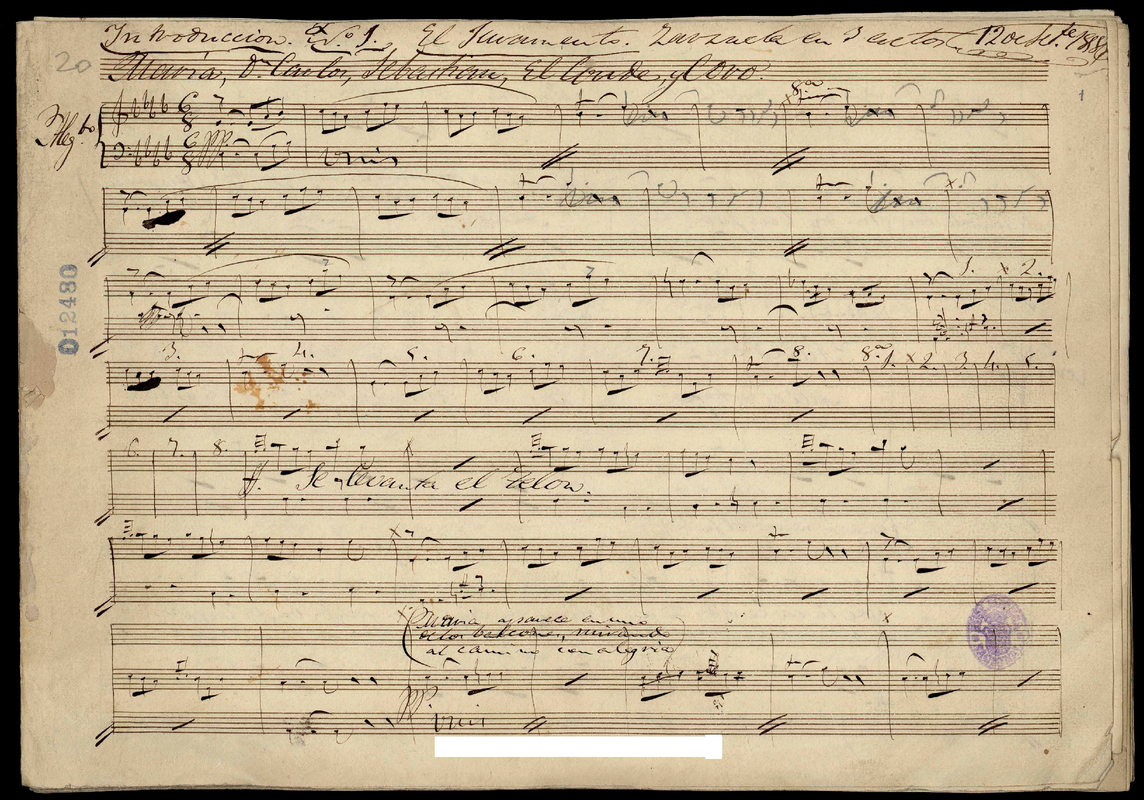 Introduccion. Nº 1. El Juramento. Zarzuela en 3 actos
20 Maria, Dn Carlos, Sebastian, El Conde, y Coro.
1
Allgtto
8ª
PPP unis
7
7 1. 2.
3. 4. 5. 6. 7. 8. 8ª 1. 2. 3. 4. 5.
012480
6. 7. 8.
ff. Se levanta el telon.
(Maria aparece en uno
de los balcones, mirando
al camino con alegria)
PPP unis